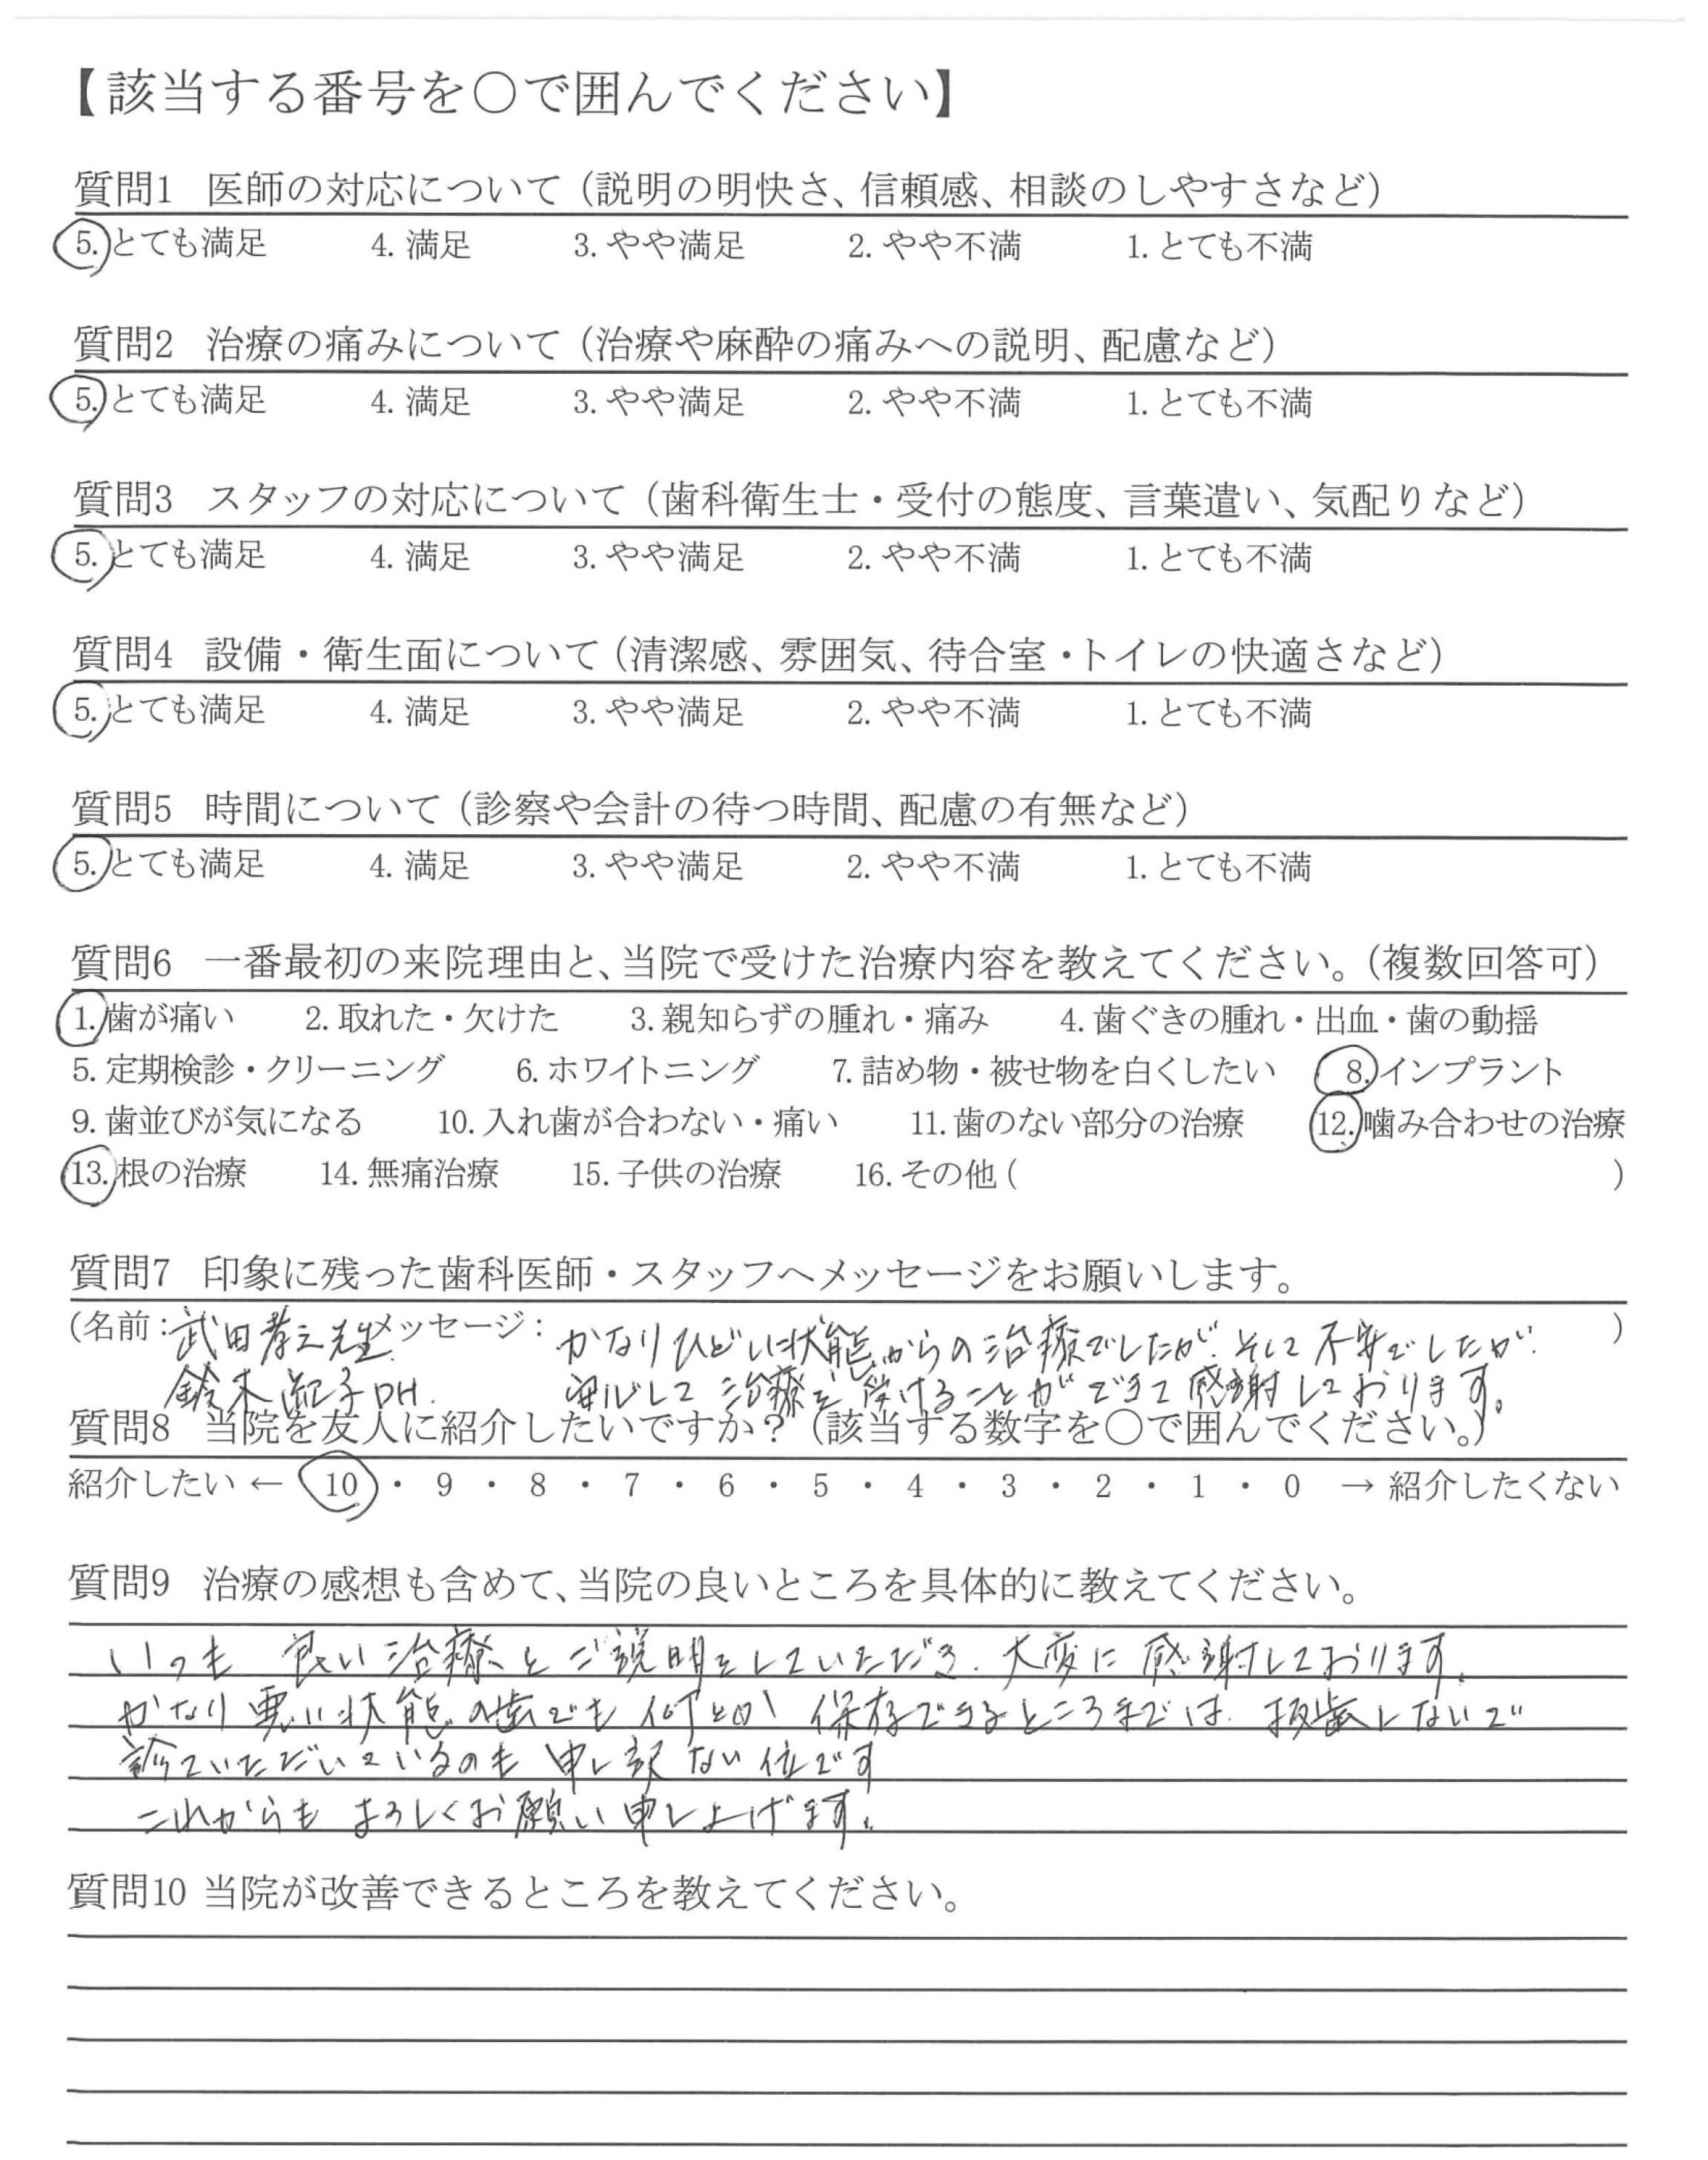 【該当する番号を○で囲んでください】
質問1 医師の対応について（説明の明快さ、信頼感、相談のしやすさなど）
5. とても満足 4. 満足 3. やや満足 2. やや不満 1. とても不満
質問2 治療の痛みについて（治療や麻酔の痛みへの説明、配慮など）
5. とても満足 4. 満足 3. やや満足 2. やや不満 1. とても不満
質問3 スタッフの対応について（歯科衛生士・受付の態度、言葉遣い、気配りなど）
5. とても満足 4. 満足 3. やや満足 2. やや不満 1. とても不満
質問4 設備・衛生面について（清潔感、雰囲気、待合室・トイレの快適さなど）
5. とても満足 4. 満足 3. やや満足 2. やや不満 1. とても不満
質問5 時間について（診察や会計の待つ時間、配慮の有無など）
5. とても満足 4. 満足 3. やや満足 2. やや不満 1. とても不満
質問6 一番最初の来院理由と、当院で受けた治療内容を教えてください。（複数回答可）
1. 歯が痛い 2. 取れた・欠けた 3. 親知らずの腫れ・痛み 4. 歯ぐきの腫れ・出血・歯の動揺
5. 定期検診・クリーニング 6. ホワイトニング 7. 詰め物・被せ物を白くしたい 8. インプラント
9. 歯並びが気になる 10. 入れ歯が合わない・痛い 11. 歯のない部分の治療 12. 噛み合わせの治療
13. 根の治療 14. 無痛治療 15. 子供の治療 16. その他 ( )
質問7 印象に残った歯科医師・スタッフへメッセージをお願いします。
(名前：武田孝之先生 メッセージ：かなりひどい状態からの治療でしたが、そして不安でしたが、 )
鈴木 DH. 安心して治療を受けることができて感謝しております。
質問8 当院を友人に紹介したいですか？（該当する数字を○で囲んでください。）
紹介したい ← 10 ・ 9 ・ 8 ・ 7 ・ 6 ・ 5 ・ 4 ・ 3 ・ 2 ・ 1 ・ 0 → 紹介したくない
質問9 治療の感想も含めて、当院の良いところを具体的に教えてください。
いつも 良い治療とご説明をしていただき、大変に感謝しております。
かなり悪い状態の歯でも何とか 保存できるところまでは、抜歯しないで
診ていただいているのも 申し訳ない位です
これからも よろしくお願い申し上げます。
質問10 当院が改善できるところを教えてください。